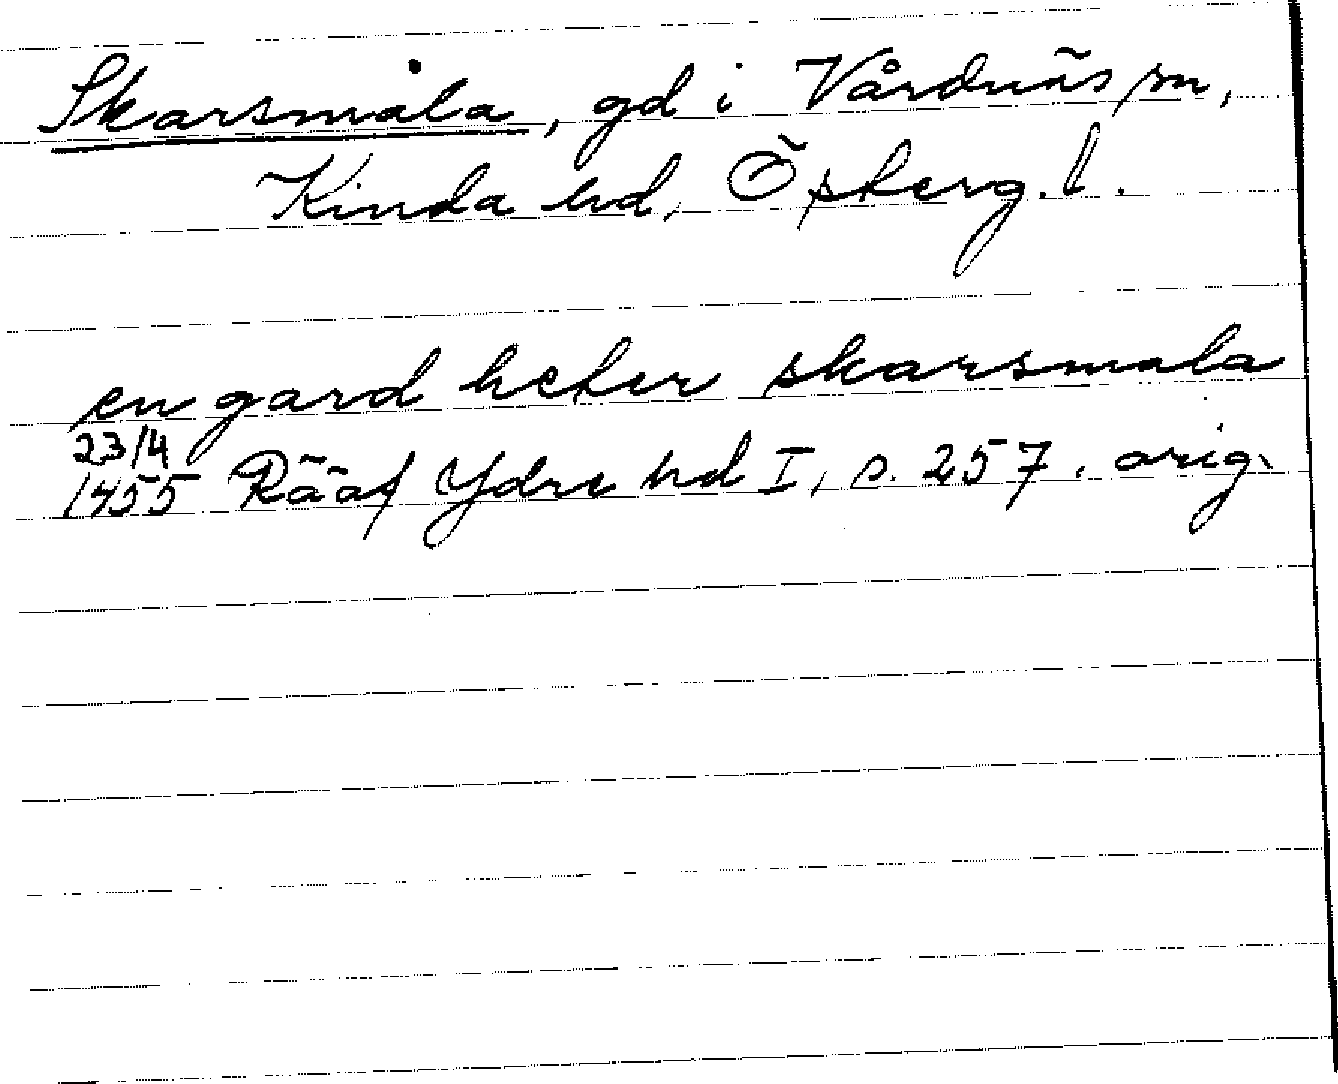 Skarsmåla, gd i Vårdnäs sn,
Kinda hd, Österg. l.
en gard heter skarsmala
23/4
1455 Rääf Ydre hd I, s. 257. orig.